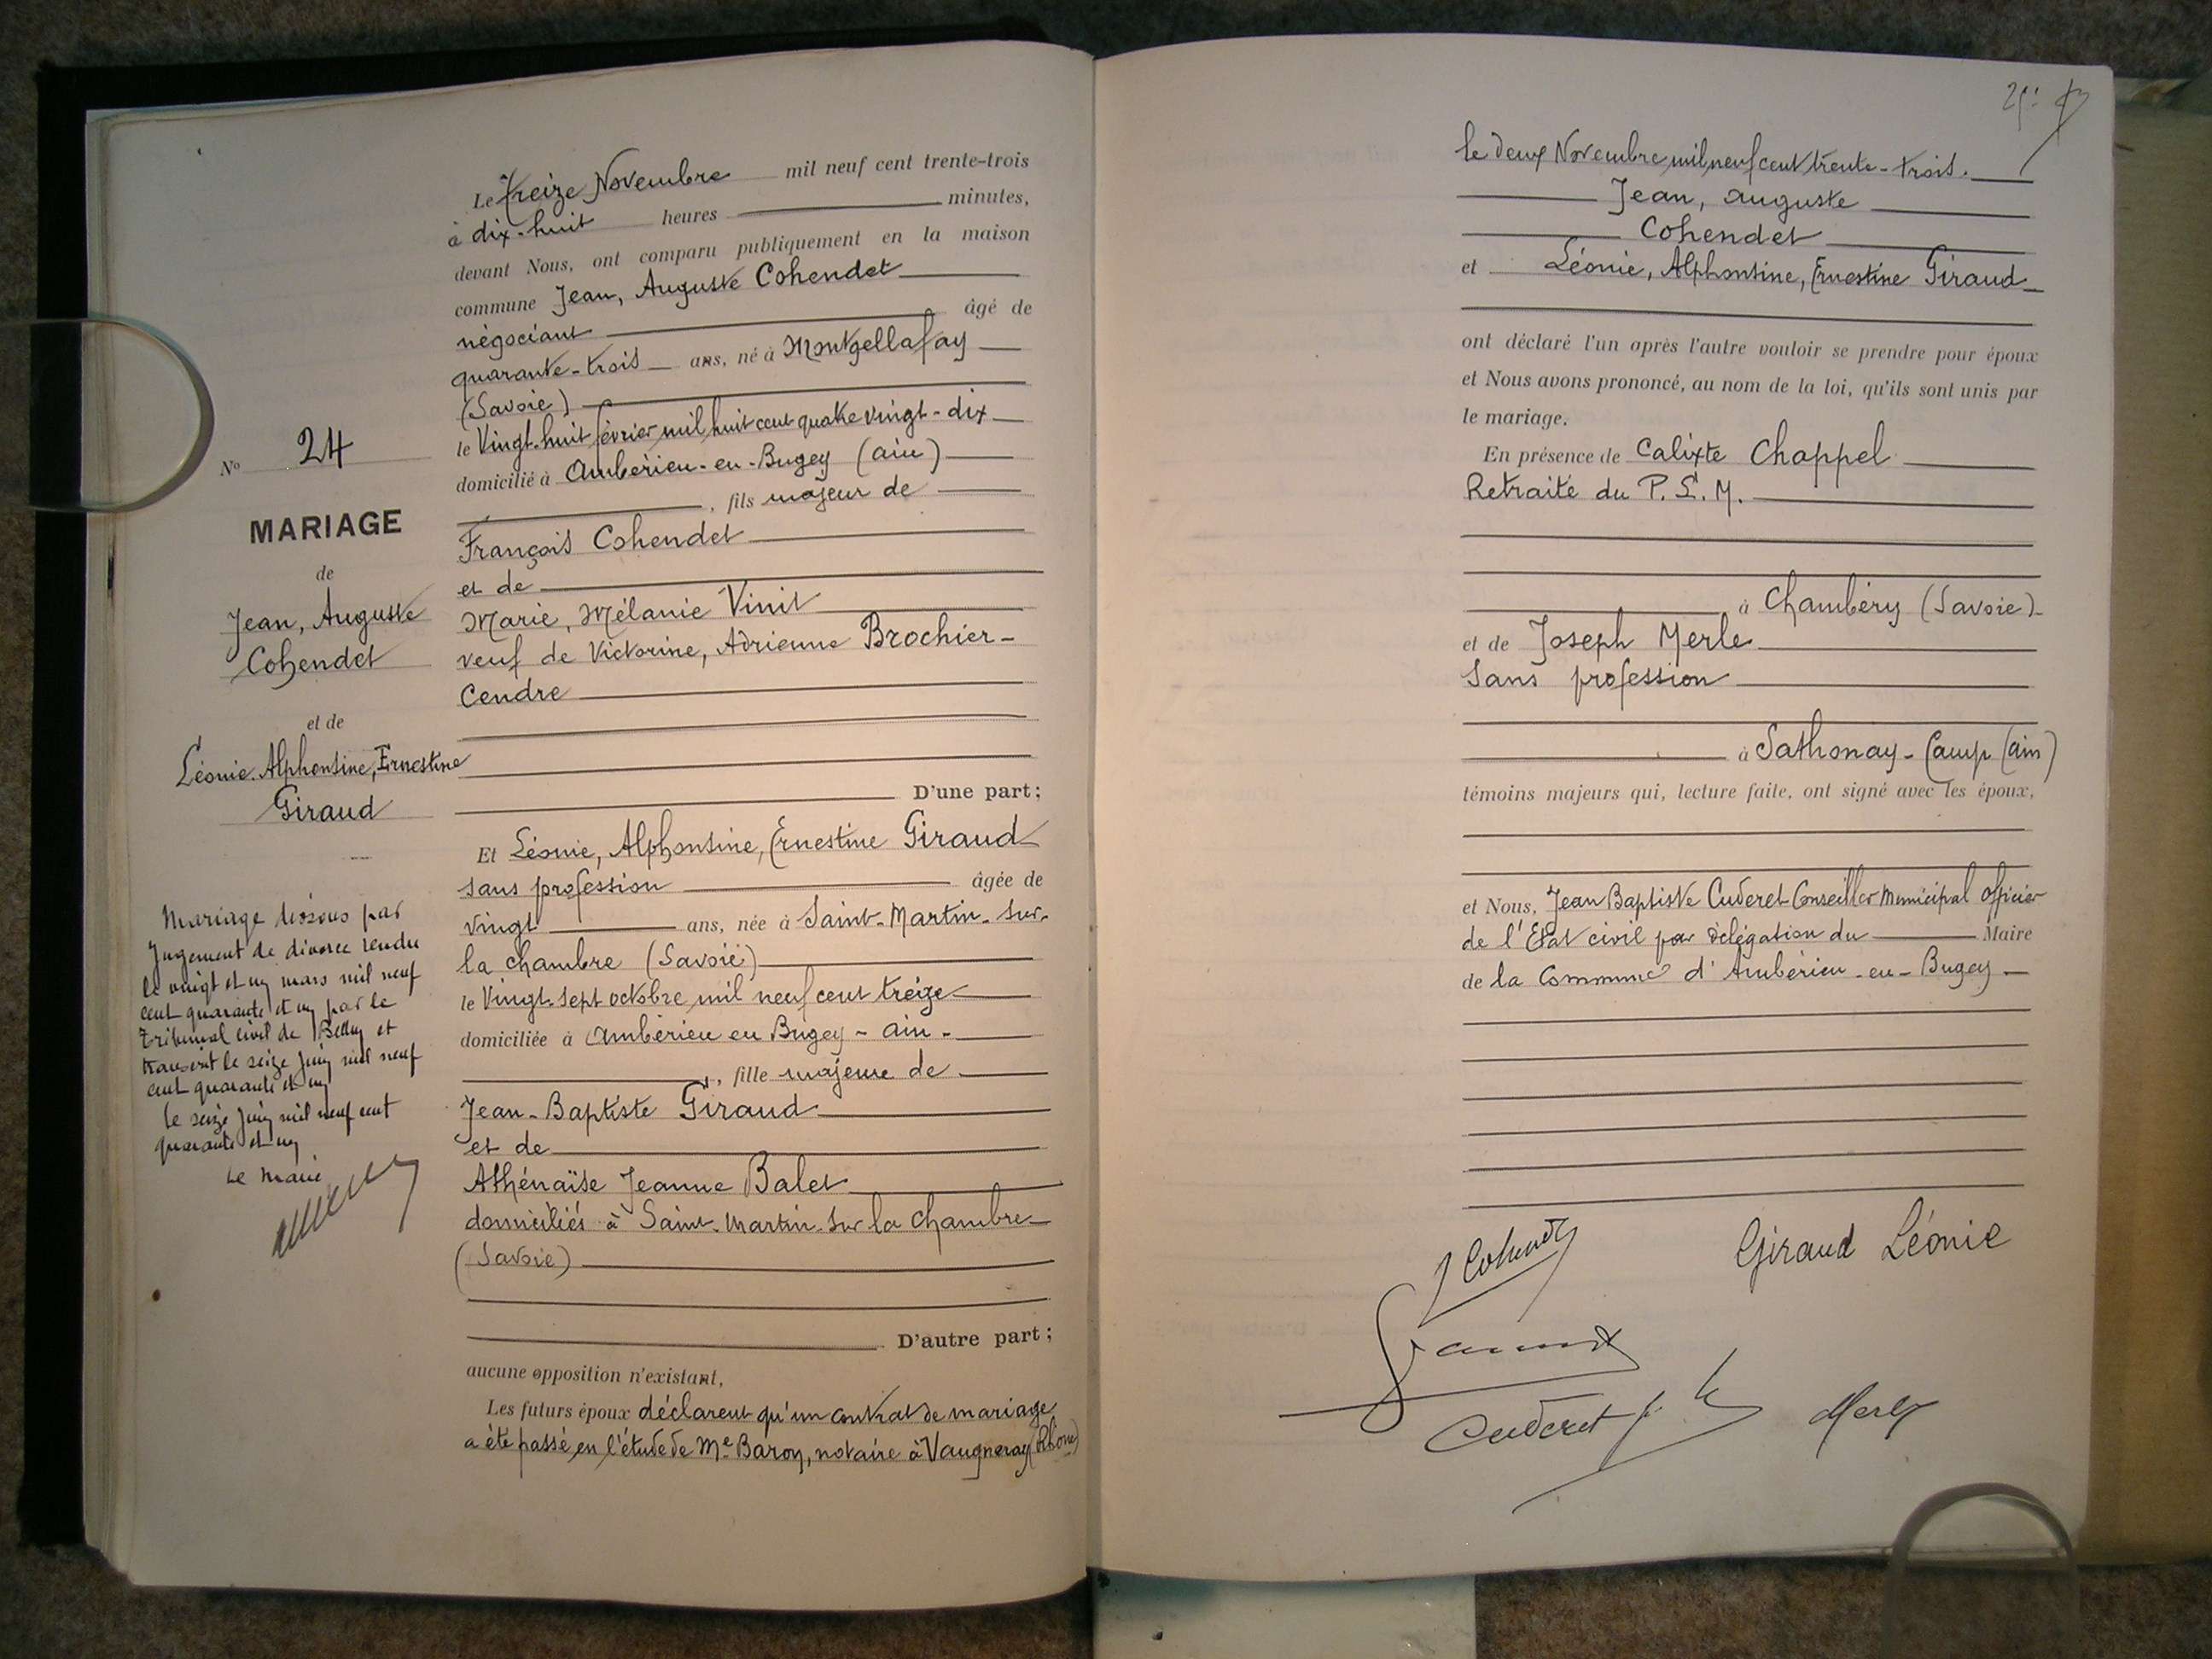 N° 24
MARIAGE
de
Jean, Auguste
Cohendet
et de
Léonie, Alphonsine, Ernestine
Giraud
Mariage dissous par
Jugement de divorce rendu
le vingt et un mars mil neuf
cent quarante et un par le
tribunal civil de Belley et
transcrit le seize juin mil neuf
cent quarante et un
le seize juin mil neuf cent
quarante et un
Le Maire
Le treize Novembre mil neuf cent trente-trois
à dix-huit heures minutes,
devant Nous, ont comparu publiquement en la maison
commune Jean, Auguste Cohendet
négociant âgé de
quarante-trois ans, né à Montgellafay
(Savoie)
le Vingt-huit février mil huit cent quatre vingt-dix
domicilié à Ambérieu-en-Bugey (ain)
, fils majeur de
François Cohendet
et de
Marie, Mélanie Vinit
veuf de Victorine, Adrienne Brochier-
Cendre
D'une part;
Et Léonie, Alphonsine, Ernestine Giraud
sans profession âgée de
vingt ans, née à Saint-Martin-sur-
la chambre (Savoie)
le Vingt-sept octobre mil neuf cent treize
domiciliée à Ambérieu en Bugey - ain -
, fille majeure de
Jean-Baptiste Giraud
et de
Athénaïse Jeanne Balet
domiciliés à Saint-Martin-sur la chambre
(Savoie)
D'autre part;
aucune opposition n'existant,
Les futurs époux déclarent qu'un contrat de mariage
a été passé en l'étude de Me Baron, notaire à Vaugneray (Rhône)
le deux Novembre mil neuf cent trente-trois.
Jean, Auguste
Cohendet
et Léonie, Alphonsine, Ernestine Giraud
ont déclaré l'un après l'autre vouloir se prendre pour époux
et Nous avons prononcé, au nom de la loi, qu'ils sont unis par
le mariage.
En présence de Calixte Chappel
Retraité du P.L.M.
à Chambéry (Savoie)
et de Joseph Merle
Sans profession
à Sathonay-Camp (ain)
témoins majeurs qui, lecture faite, ont signé avec les époux,
et Nous, Jean Baptiste Cuderet Conseiller Municipal officier
de l'État civil par délégation du Maire
de la Commune d'Ambérieu-en-Bugey
J Cohendet
Giraud Léonie
Cuderet
Merle